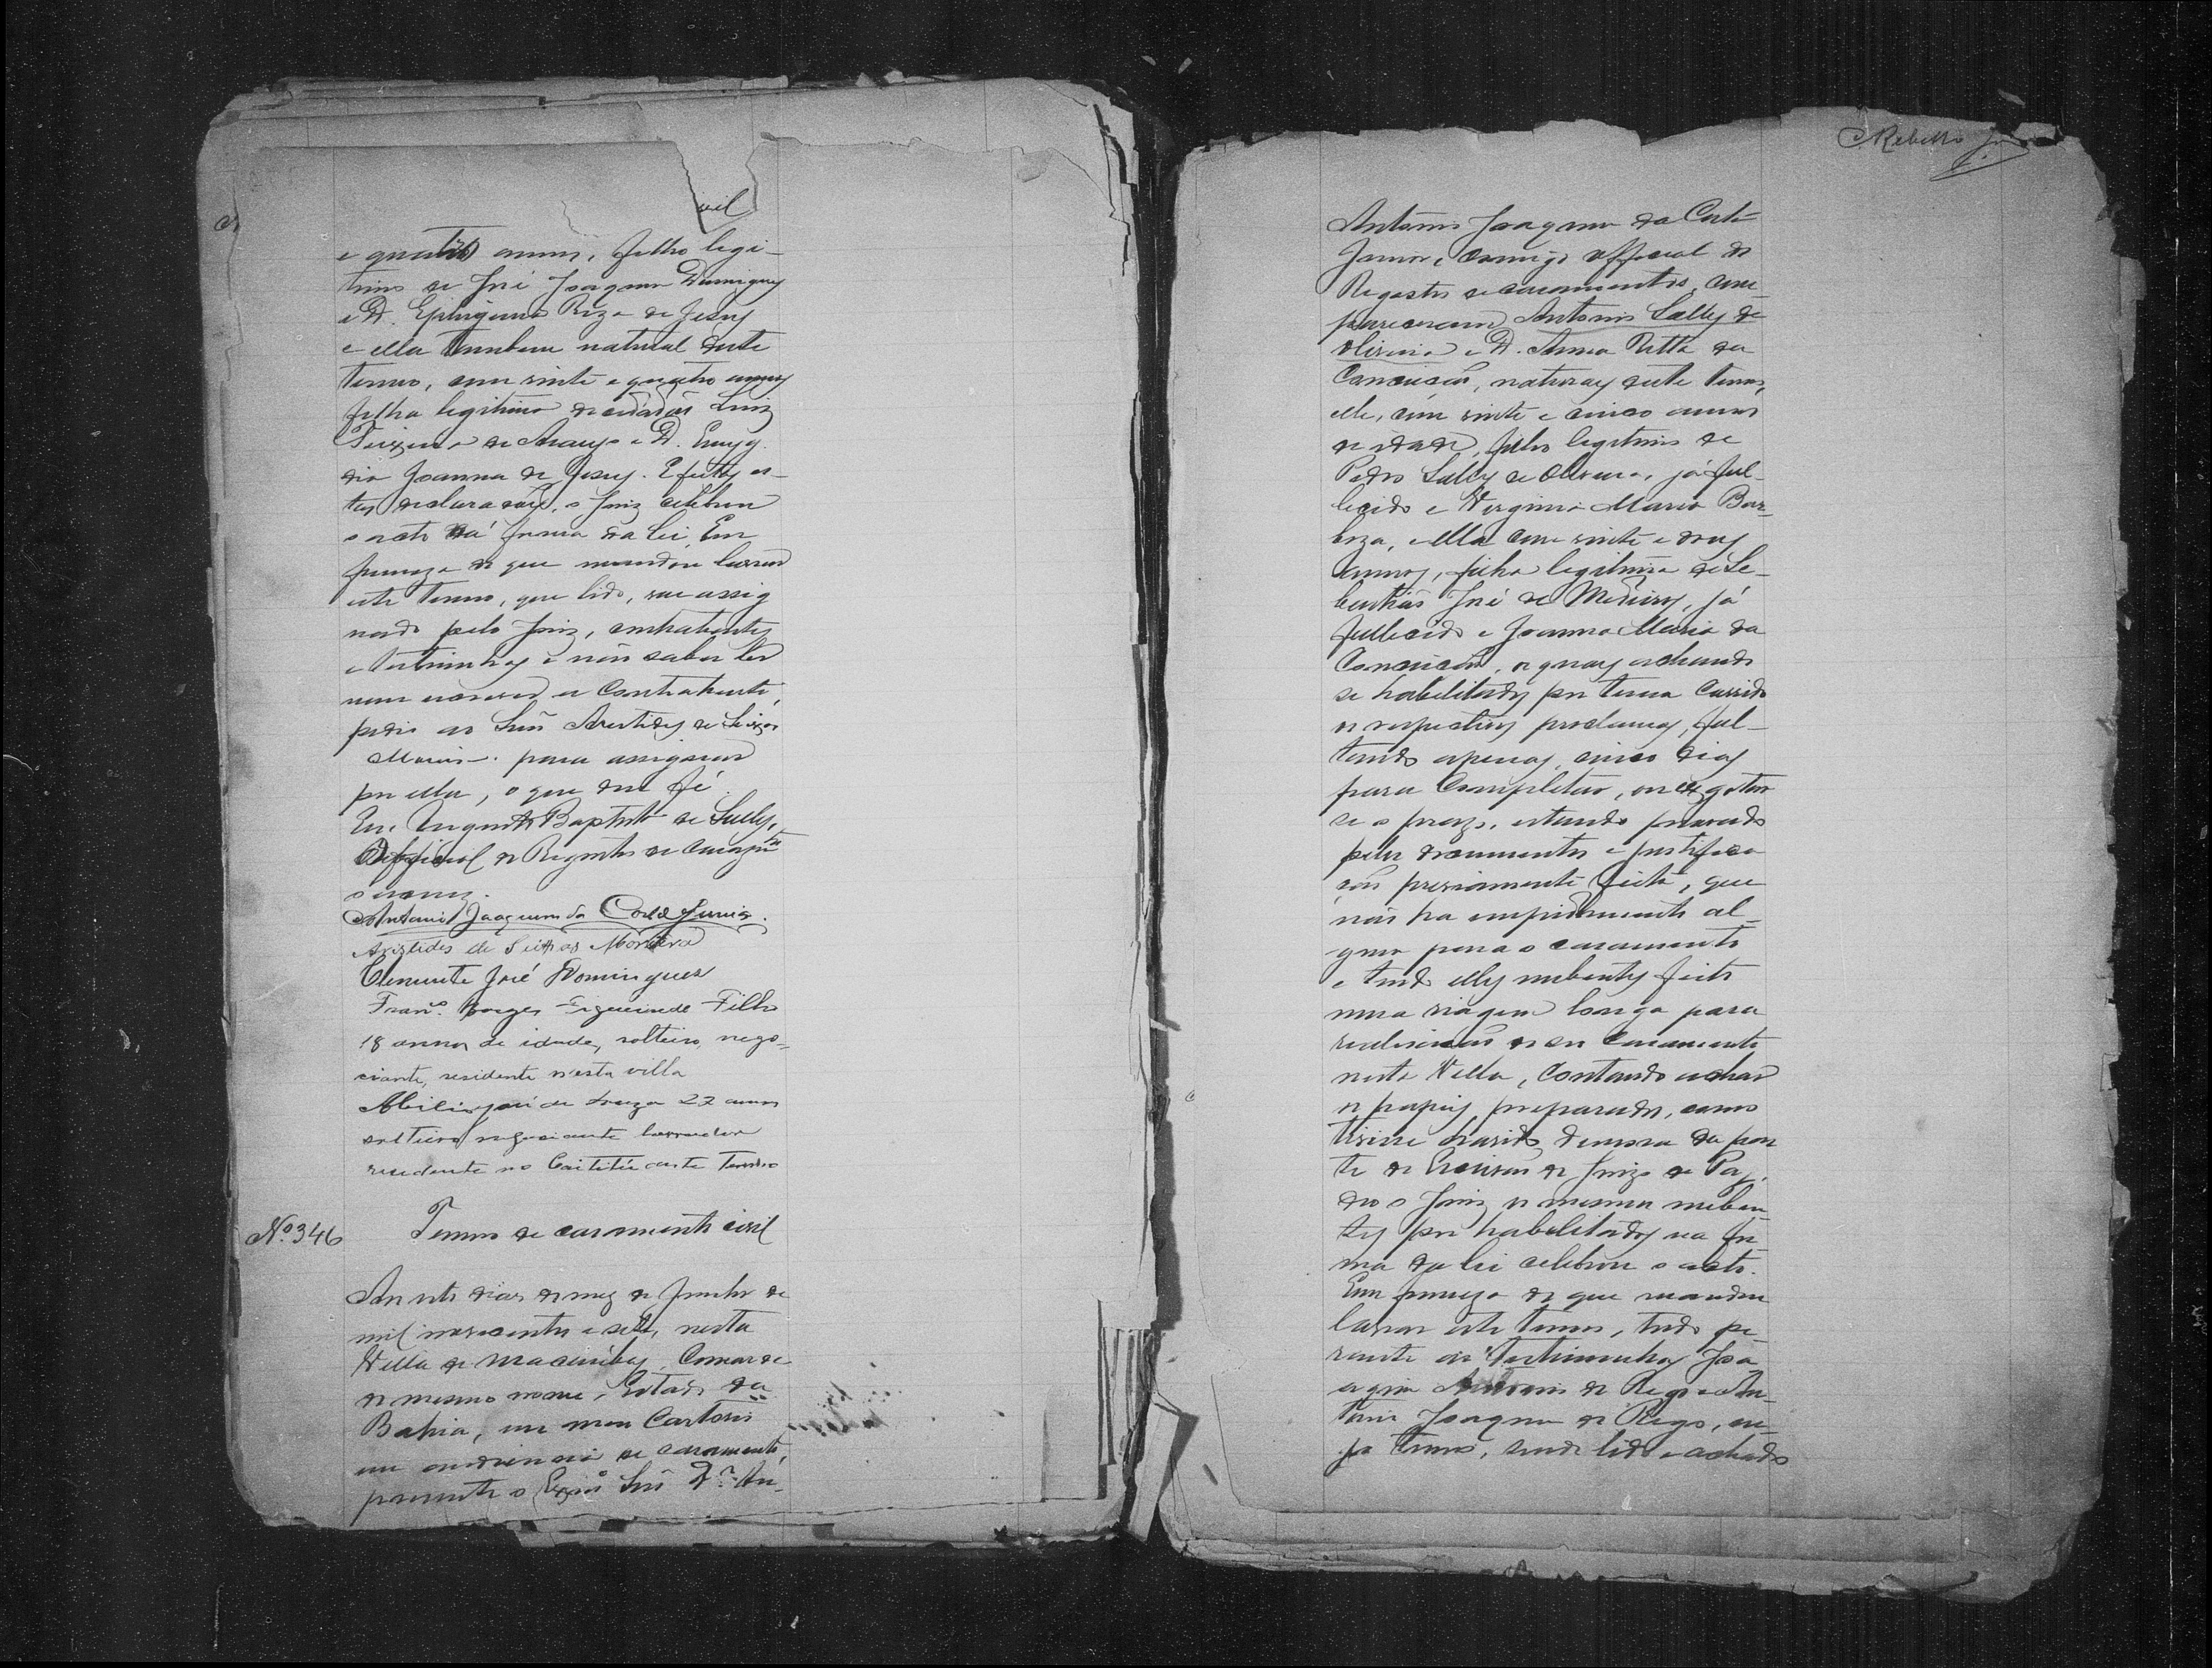 vil
e quatro annos, filho legi-
timo de José Joaquim Domingues
e D. Epiugenia Roza de Jesus
e ella tambem natural deste
termo, com vinte e quatro annos
filha legitima do cidadão Luiz
Teixeira de Araujo e D. Emyg-
dia Joanna de Jesus. E feitas es-
tas declarações, o Juiz celebrou
o acto na forma da lei. Em
firmeza do que mandou lavrar
este termo, que lido, vae assig
nado pelo Juiz, contrahentes
e testimunhas e não saber ler
nem escrever a Contrahente,
pedio ao Snr Aristides de Seixas
para assignar
por ella, o que dou fé.
Eu, Augusto Baptista de Sally,
Official do Registro de Casam^tos
o escrevy.
Antonio Joaquim da Costa Junior.
Aristides de Seixas
Clemente José Domingues
Fran^co Borges Figueiredo Filho
18 annos de idade, solteiro, nego-
ciante, residente n'esta villa
Abilio José de Souza 27 annos
solteiro negociante lavrador
residente no Caititú deste Termo
Nº 346
Termo de casamento civil
Aos oito dias do mez de Junho de
mil novecentos e sete, nesta
Villa de Macaúbas, Comarca
do mesmo nome, Estado da
Bahia, em meu Cartorio
em audiencia de casamento,
presente o Exmo Snr Dr. An-
C. Rebello Jr
Antonio Joaquim da Costa
Junior, comigo official do
Registro de casamentos, com-
pareceram Antonio Sally de
Oliveira e D. Anna Ritta da
Conceição, naturaes deste termo,
elle, com vinte e cinco annos
de idade, filho legitimo de
Pedro Sally de Oliveira, já fal-
lecido e Virginia Maria Bar-
boza, e ella com vinte e dous
annos, filha legitima de Se-
bastião José de Medeiros, já
fallecido e Joanna Maria da
Conceição, os quaes achando
se habilitados por terem corrido
os respectivos proclamas, fal-
tando apenas cinco dias
para completar, ou exgotar
se o prazo, estando provado
pelos documentos e justifica
ção previamente feita, que
não ha impedimento al-
gum para o casamento
e tendo elles nubentes feito
uma viagem longa para
realisação do seu casamento
nesta Villa, contando achar
os papeis preparados, como
tivesse havido demora da par
te do Escrivão do Juizo de Paz,
deo o Juiz os mesmos nuben-
tes por habilitados na for-
ma da lei celebrou o acto.
Em firmeza do que mandou
lavrar este termo, tudo pe-
rante as testimunhas Joa-
quim Antonio do Rego e An-
tonio Joaquim do Rego, cu-
jo termo, sendo lido e achado